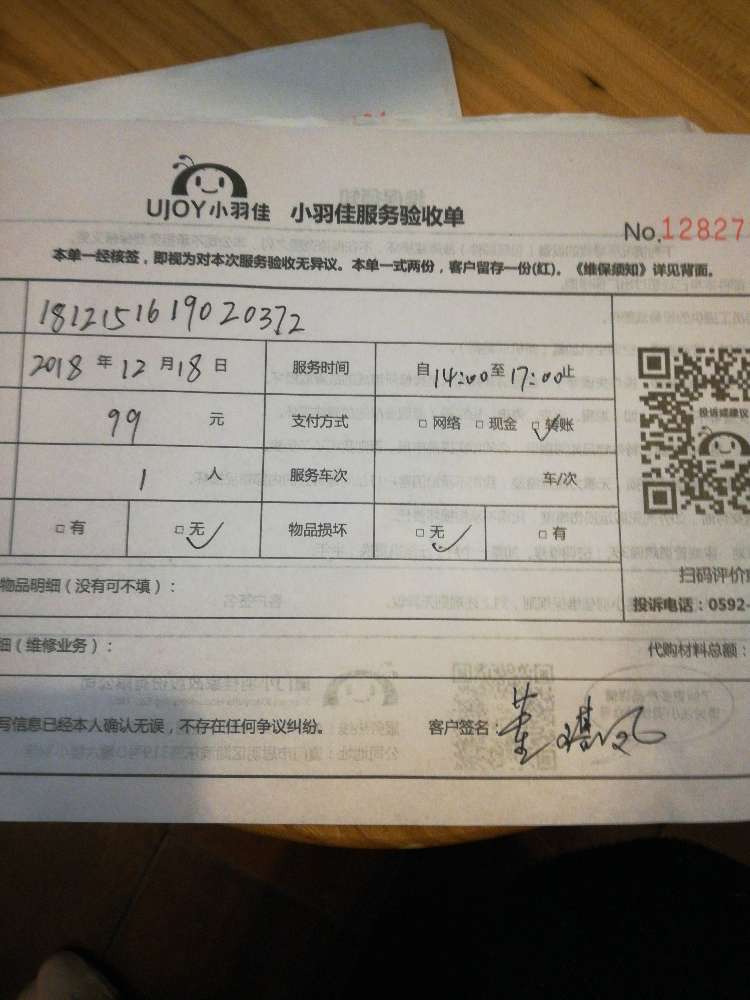 UJOY小羽佳 小羽佳服务验收单
No.12827
本单一经核签，即视为对本次服务验收无异议。本单一式两份，客户留存一份(红)。《维保须知》详见背面。
1812151619020372
2018 年 12 月 18 日 服务时间 自 14:00 至 17:00 止
99 元 支付方式 □ 网络 □ 现金 □ 转账
投诉或建议
1 人 服务车次 车/次
□ 有 □ 无 物品损坏 □ 无 □ 有
物品明细（没有可不填）：
扫码评价
投诉电话：0592-
细（维修业务）：
代购材料总额：
写信息已经本人确认无误，不存在任何争议纠纷。 客户签名：董